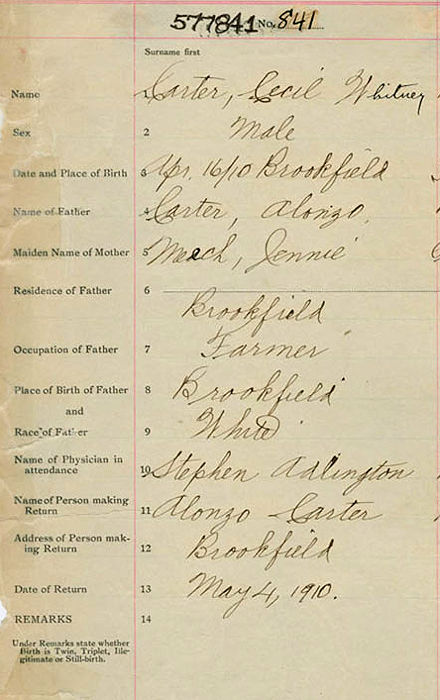 577841 No. 841
Surname first
Name Carter, Cecil Whitney
Sex 2 Male
Date and Place of Birth 3 Apr. 16/10 Brookfield
Name of Father 4 Carter, Alonzo
Maiden Name of Mother 5 Meech, Jennie
Residence of Father 6
Brookfield
Occupation of Father 7 Farmer
Place of Birth of Father 8 Brookfield
and
Race of Father 9 White
Name of Physician in
attendance 10 Stephen Adlington
Name of Person making
Return 11 Alonzo Carter
Address of Person mak-
ing Return 12 Brookfield
Date of Return 13 May 4, 1910.
REMARKS 14
Under Remarks state whether
Birth is Twin, Triplet, Ille-
gitimate or Still-birth.